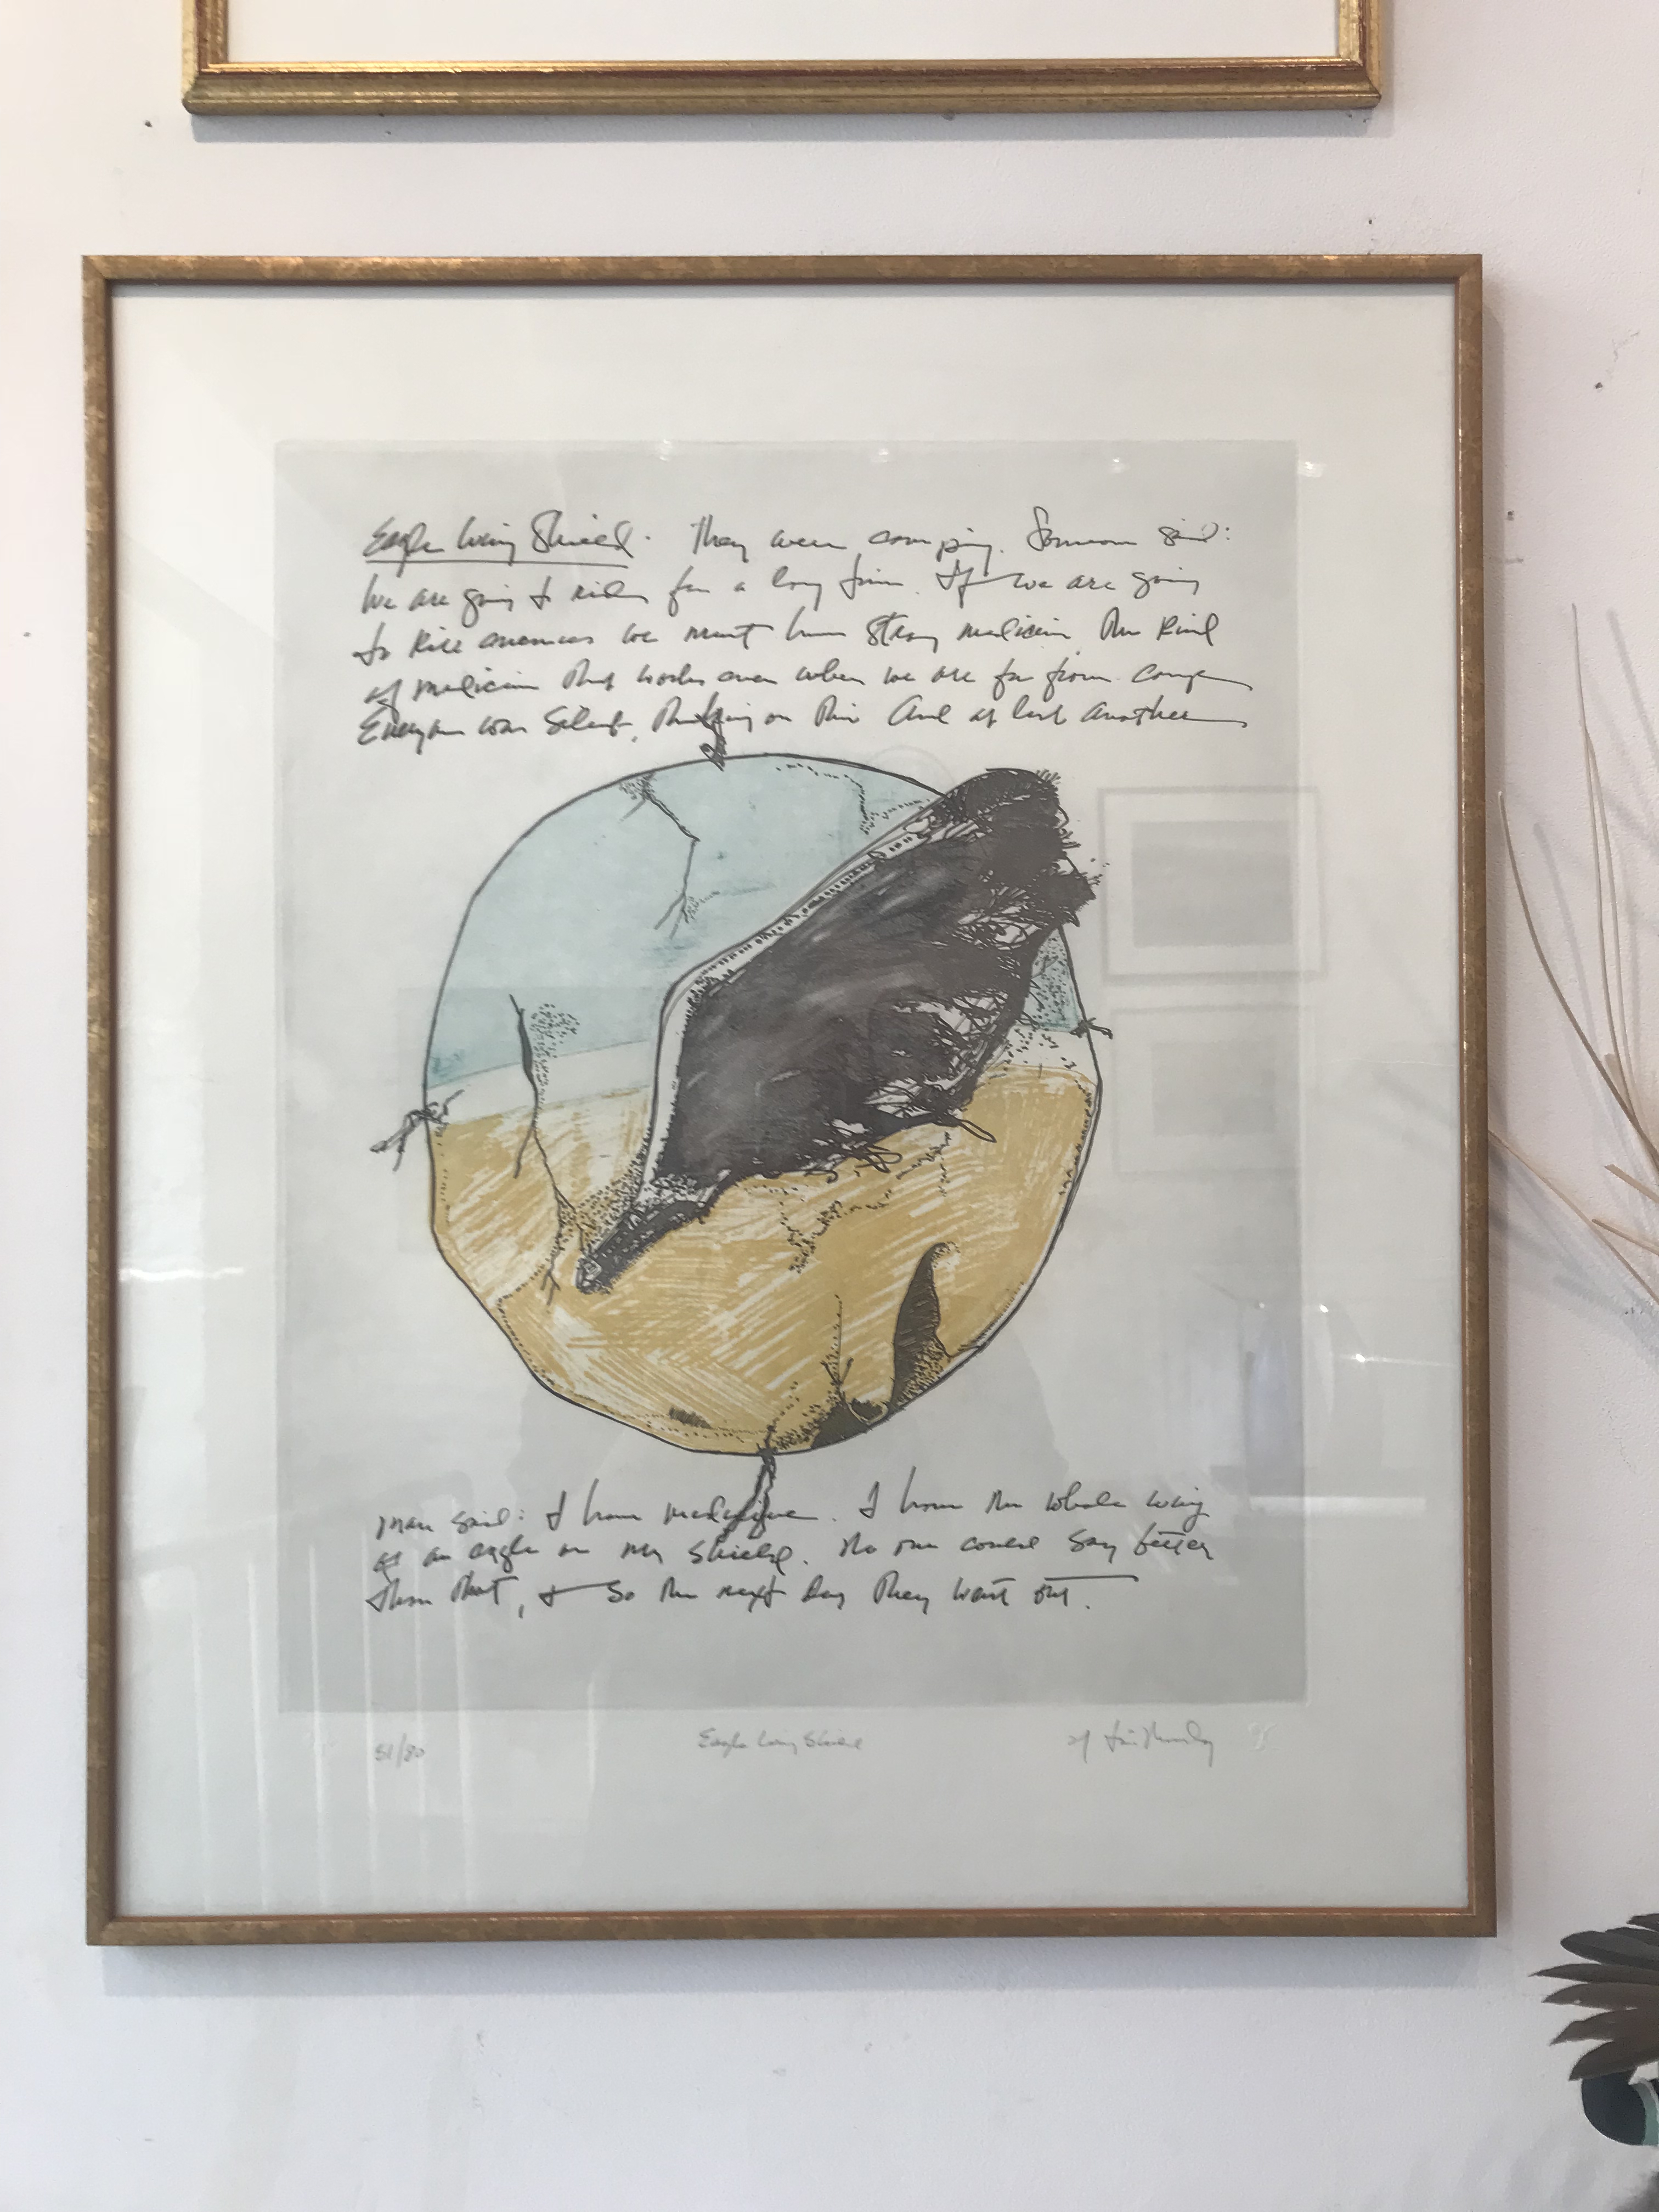 Eagle Wing Shield. They were camping. Someone said:
We are going to ride for a long time. If we are going
to kill enemies we must have strong medicine, the kind
of medicine that works even when we are far from camp
Everyone was silent, thinking on this And at last another
man said: I have medicine. I have the whole wing
of an eagle on my shield. No one could say better
than that, & so the next day they went out.
51/80 Eagle Wing Shield